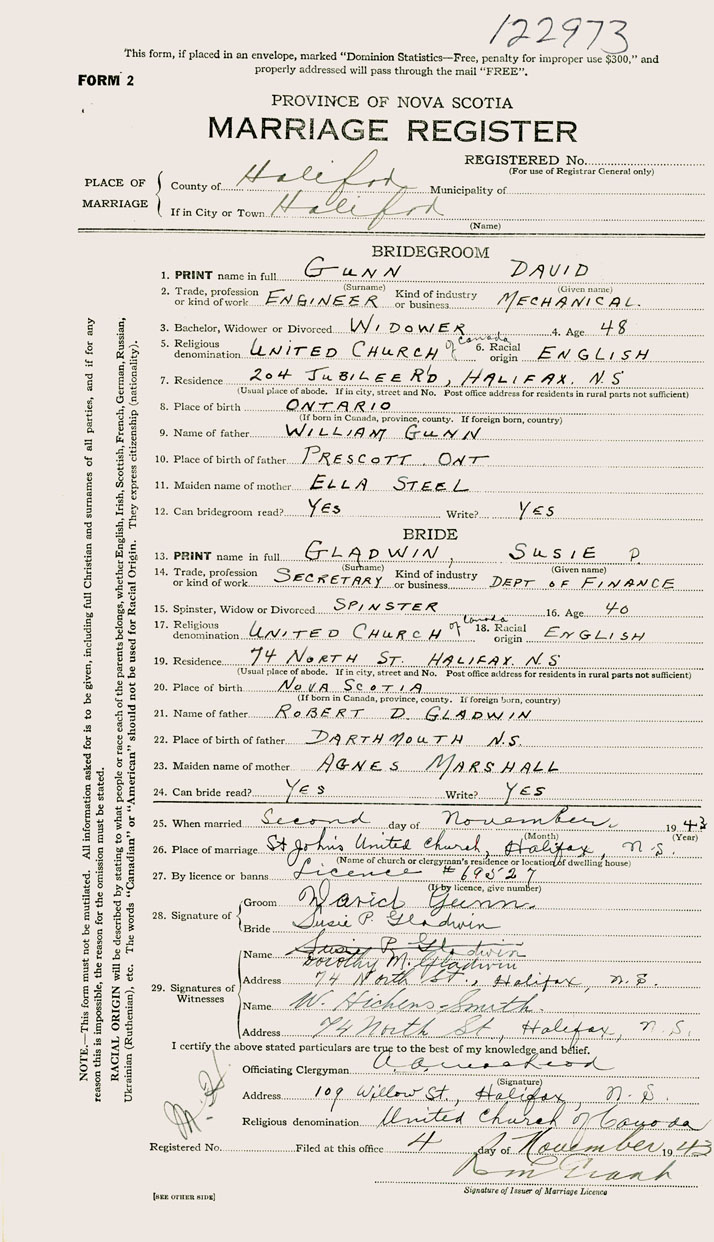 122973
This form, if placed in an envelope, marked "Dominion Statistics—Free, penalty for improper use $300," and
properly addressed will pass through the mail "FREE".
FORM 2
PROVINCE OF NOVA SCOTIA
MARRIAGE REGISTER
REGISTERED No.
(For use of Registrar General only)
PLACE OF MARRIAGE
County of Halifax Municipality of
If in City or Town Halifax
(Name)
BRIDEGROOM
1. PRINT name in full GUNN DAVID
(Surname) (Given name)
2. Trade, profession or kind of work ENGINEER Kind of industry or business MECHANICAL.
3. Bachelor, Widower or Divorced WIDOWER 4. Age 48
5. Religious denomination UNITED CHURCH of Canada 6. Racial origin ENGLISH
7. Residence 204 JUBILEE R'D, HALIFAX. N.S
(Usual place of abode. If in city, street and No. Post office address for residents in rural parts not sufficient)
8. Place of birth ONTARIO
(If born in Canada, province, county. If foreign born, country)
9. Name of father WILLIAM GUNN
10. Place of birth of father PRESCOTT. ONT
11. Maiden name of mother ELLA STEEL
12. Can bridegroom read? YES Write? YES
BRIDE
13. PRINT name in full GLADWIN, SUSIE P.
(Surname) (Given name)
14. Trade, profession or kind of work SECRETARY Kind of industry or business DEPT OF FINANCE
15. Spinster, Widow or Divorced SPINSTER 16. Age 40
17. Religious denomination UNITED CHURCH of Canada 18. Racial origin ENGLISH
19. Residence 74 NORTH ST. HALIFAX. N.S
(Usual place of abode. If in city, street and No. Post office address for residents in rural parts not sufficient)
20. Place of birth NOVA SCOTIA
(If born in Canada, province, county. If foreign born, country)
21. Name of father ROBERT D. GLADWIN
22. Place of birth of father DARTHMOUTH N.S.
23. Maiden name of mother AGNES MARSHALL
24. Can bride read? YES Write? YES
25. When married Second day of November, 1943
(Month) (Year)
26. Place of marriage St John's United Church, Halifax, N.S.
(Name of church or clergyman's residence or location of dwelling house)
27. By licence or banns Licence #69527
(If by licence, give number)
28. Signature of
Groom David Gunn.
Bride Susie P. Gladwin
29. Signatures of Witnesses
Susie P. Gladwin
Name Dorothy M. Gladwin
Address 74 North St., Halifax, N.S.
Name W. Hichens-Smith.
Address 74 North St, Halifax, N.S.
I certify the above stated particulars are true to the best of my knowledge and belief.
Officiating Clergyman
(Signature)
Address 109 Willow St., Halifax, N.S.
Religious denomination United Church of Canada
Registered No. Filed at this office 4 day of November 1943
Signature of Issuer of Marriage Licence
[SEE OTHER SIDE]
NOTE.—This form must not be mutilated. All information asked for is to be given, including full Christian and surnames of all parties, and if for any
reason this is impossible, the reason for the omission must be stated.
RACIAL ORIGIN will be described by stating to what people or race each of the parents belongs, whether English, Irish, Scottish, French, German, Russian,
Ukrainian (Ruthenian), etc. The words "Canadian" or "American" should not be used for Racial Origin. They express citizenship (nationality).